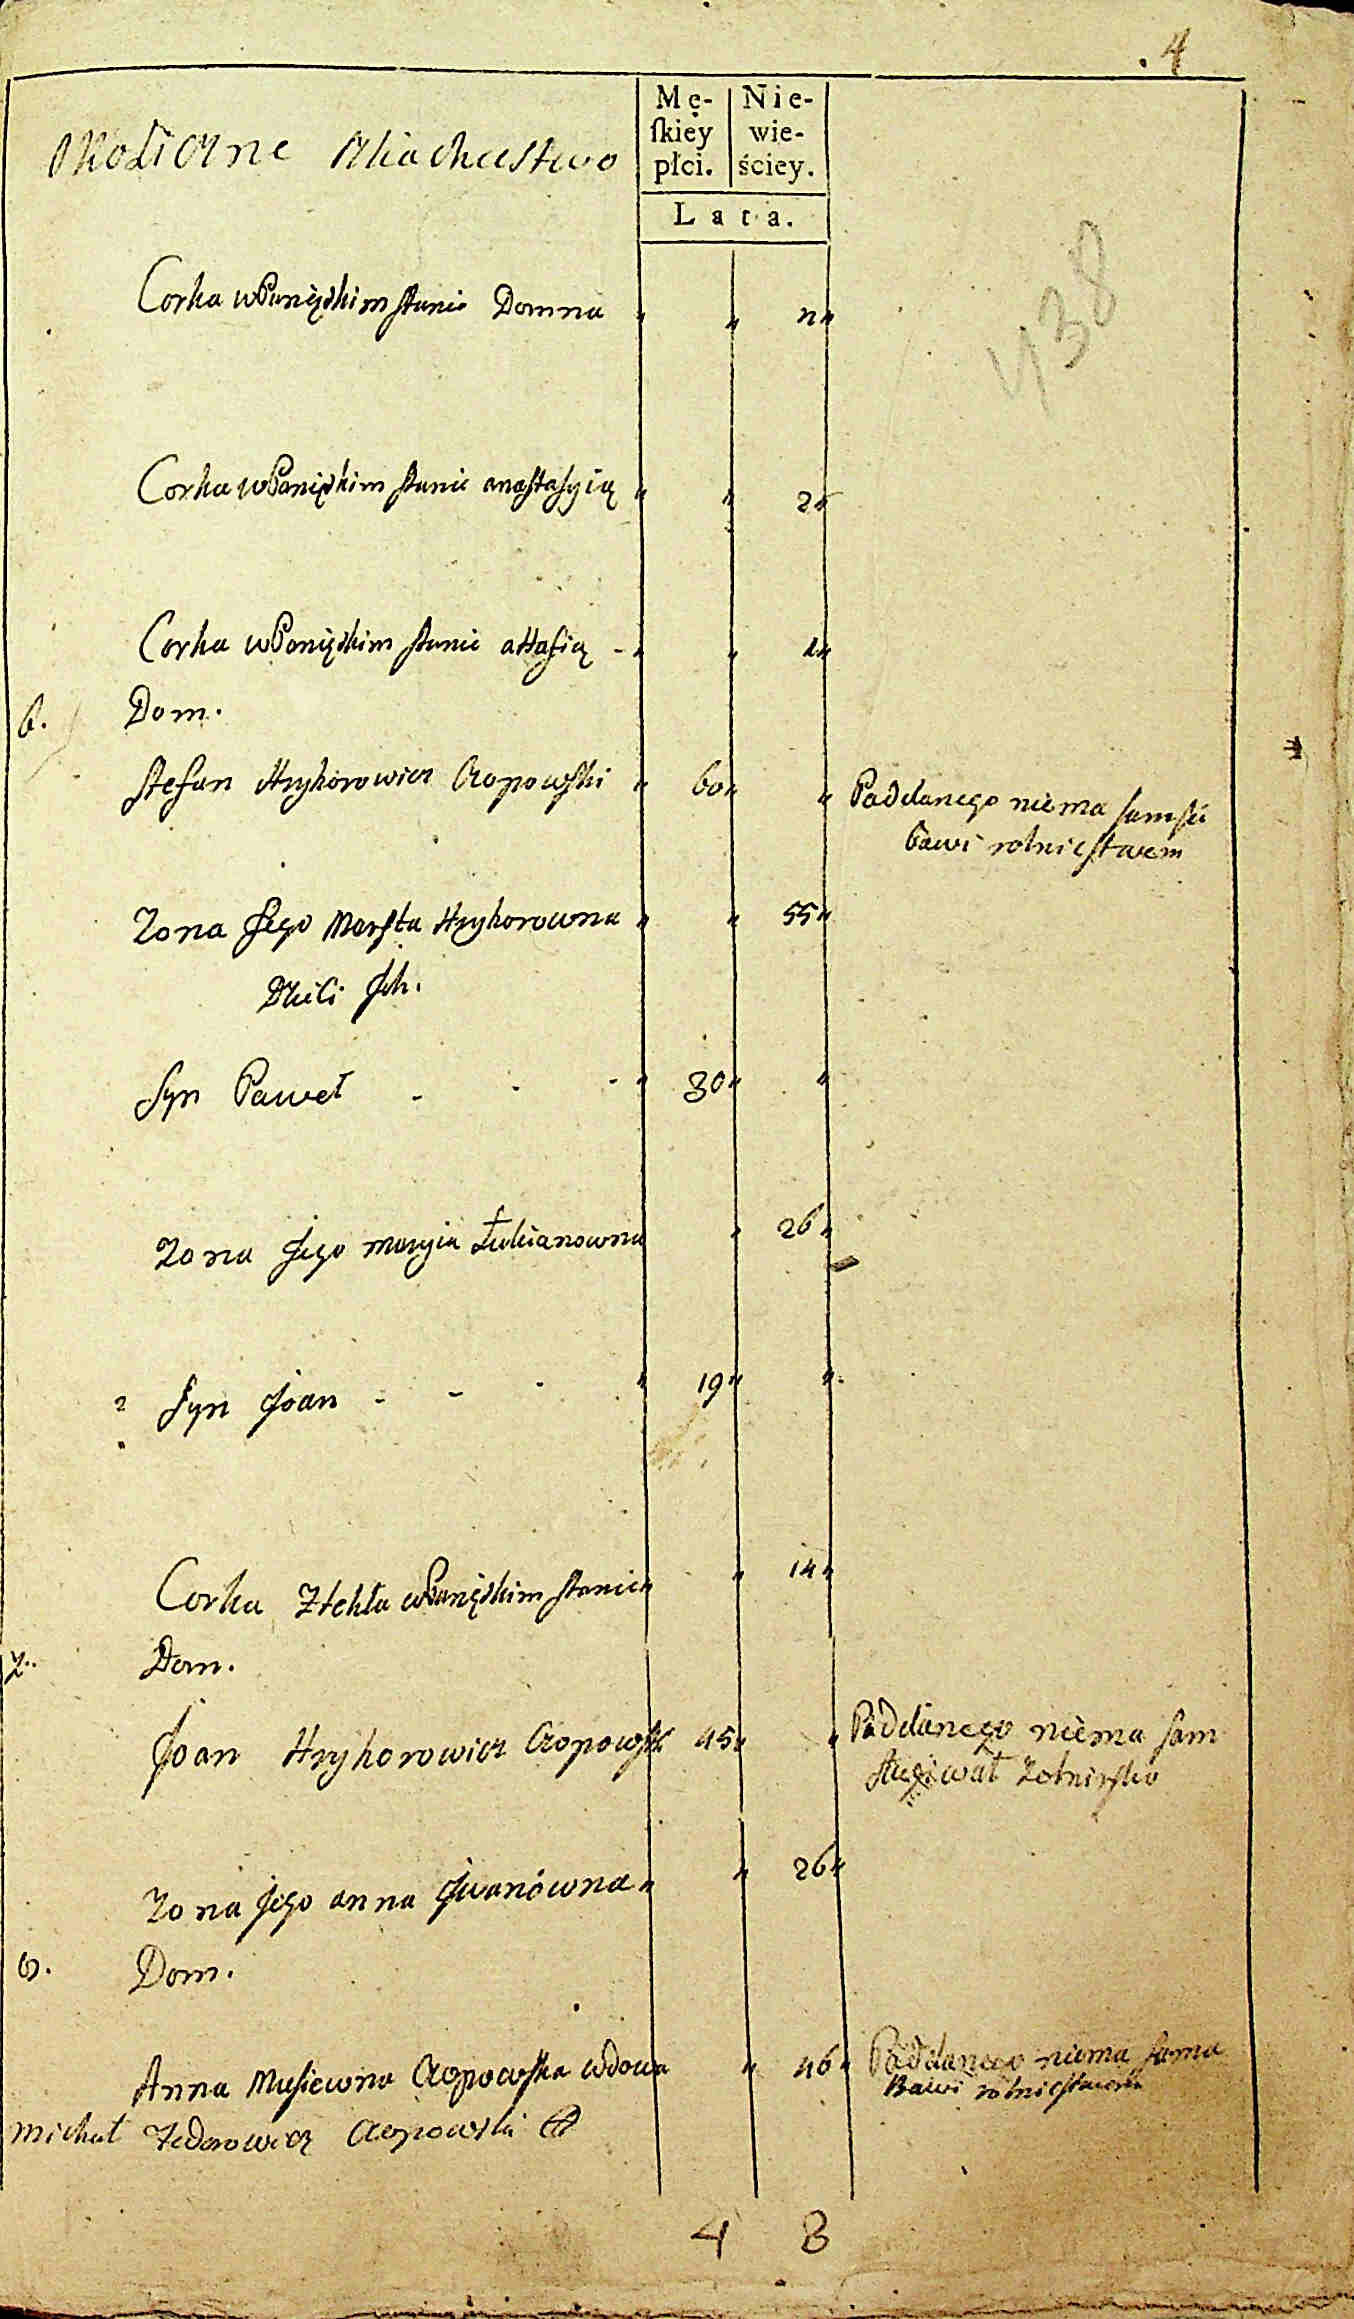 4
Okoliczne Szlachectwo
Mę-
skiey
płci.
Nie-
wie-
ściey.
Lata.
438
Corka w Panięskim stanie Domna " " "
Corka w Panięskim stanie anastasyią " " 2
Corka w Panięskim stanie " " "
6. Dom.
Stefan Hryhorowicz Czopowski " 60 " " Paddanego niema sam się
bawi rolnictwem
Zona Jego Marfta Hryhorowna " " 55 "
Dzieci Jch.
Syn Paweł - - - " 30 " "
Zona Jego maryia Łukianowna " 26 "
2 Syn Joan - - - " 19 " "
Corka Ztekla w Panięskim stanie " " 14 "
7. Dom.
Joan Hryhorowicz Czopowski 45 " " Paddanego niema sam
służiwał Zołnirsko
Zona Jego anna Jwanówna " " 26 "
8. Dom.
Anna Musiewna Czopowska wdowa " 46 " Paddanego niema sama
Bawi rolnictwem
michał Fedorowicz Czopowski
4 8